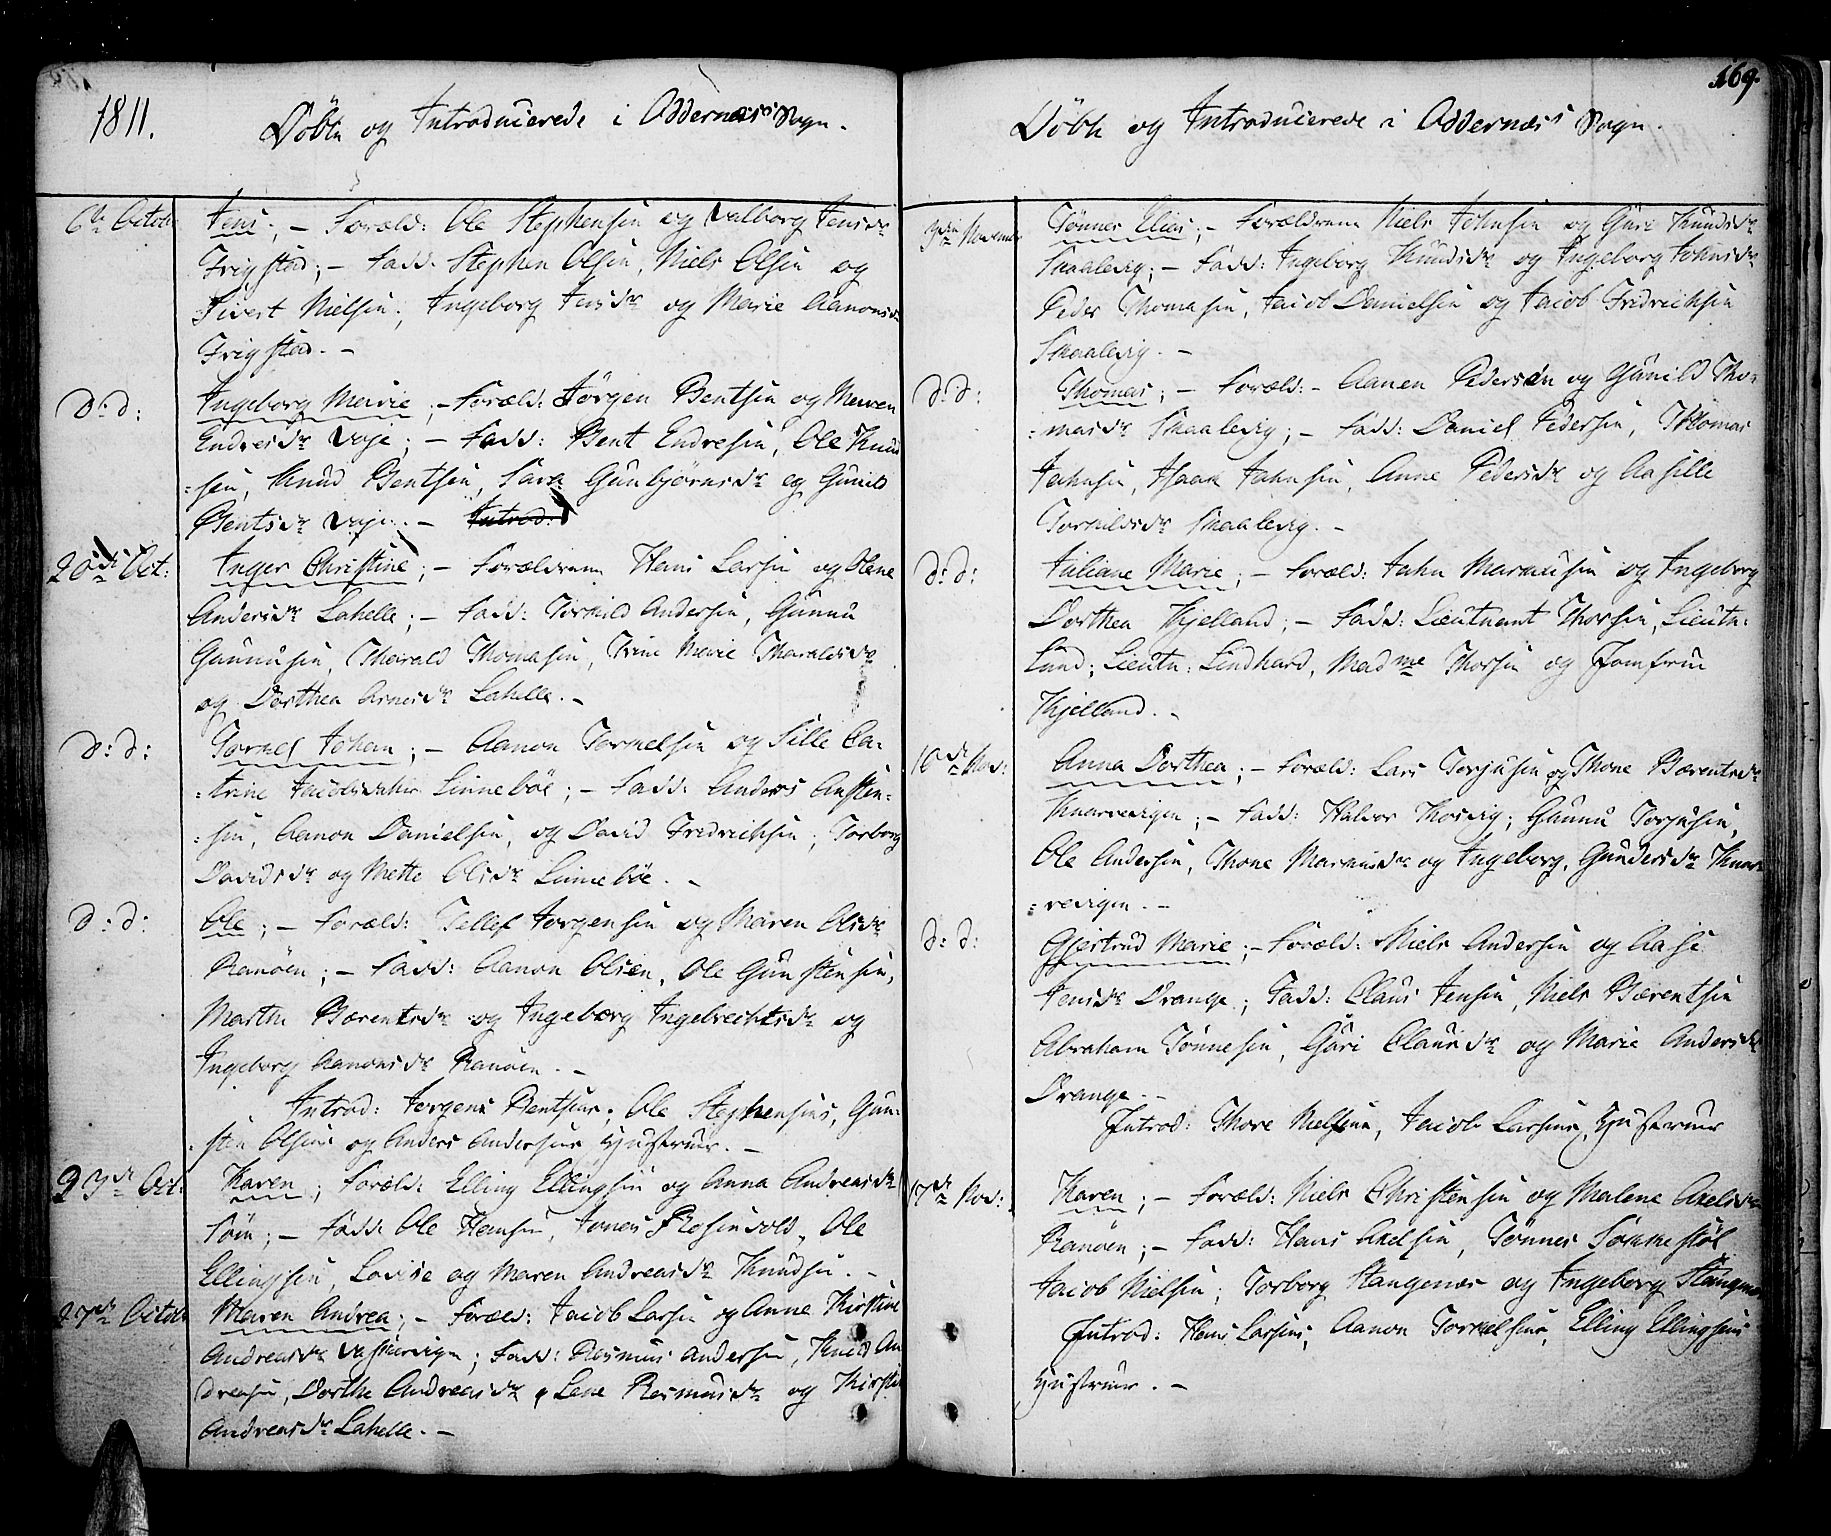 1811.
Döbte og Introducerede i Oddernæss Sogn.
6te October
Jens; – Foræld: Ole Stephensen og Valborg Jensdr
Frigstad; – Fadd: Stephen Olsen, Niels Olsen og
Sivert Nielsen; Ingeborg Jensdr og Marie Aanonsdr
Frigstad. –
d: d:
Ingeborg Marie; – Foræld: Jörgen Bentsen og Maren
Endresdr Vaje; – Fadd: Bent Endresen, Ole Knud
:sen, Knud Bentsen, Sara Gunbjörnsdr og Gunild
Bentsdr Vaje. – Introd:
20de Oct:
Inger Christine; – Forældrene Hans Larsen og Olene
Andersdr Lahelle; – Fadd: Torkild Andersen, Gunnu
Gunnusen, Tharald Thomasen, Trine Marie Tharaldsdr
og Dorthea Arnesdr Lahelle. –
d: d:
Tormel Johan; – Aanon Tormelsen og Sille Ca:
:trine Jacobsdatter Linneböe; – Fadd: Anders Austen:
:sen, Aanon Danielsen, og David Fredrichsen; Torborg
Davidsdr og Mette Olsdr Linneböe. –
d: d:
Ole; – Foræld: Tellef Jorgensen og Maren Olsdr
Ranöen; – Fadd: Aanon Olsen, Ole Gunstensen,
Marthe Bærentsdr og Ingeborg Ingebrechtsdr og
Ingeborg Aanonsdr Ranöen. –
Introd: Jorgens Bentsens, Ole Stephensens, Gun:
:sten Olsens og Anders Andersens Hustruer. –
23de Oct:
Karen; Foræld: Elling Ellingsen og Anna Andreasdr
Söm; – Fadd: Ole Hansen, Jonas Rosensold, Ole
Ellingsen, Lovise og Maren Andreasdr Knudsen. –
27de October
Maren Andrea; – Foræld: Jacob Larsen og Anne Kirstine
Andreasdr; Fadd: Rasmus Andersen, Knud An
dreasen, Dorthe Andreasdr, Lene Rasmusdr og Kirstine
Andreasdr Lahelle. –
169.
Döbte og Introducerede i Oddernæss Sogn.
3die November
Tönnes Elias; – Forældrene Niels Johnsen og Guri Knudsdr
Skaalevig; – Fadd: Ingeborg Knudsdr og Ingeborg Johnsdr
Peder Thomasen, Jacob Danielsen og Jacob Fredrichsen
Skaalevig. –
d: d:
Thomas; – Foræld: – Aanen Pedersen og Gunild Tho:
:masdr Skaalevig; – Fadd: Daniel Pedersen, Thomas
Jahnsen, Isaak Jahnsen, Anne Pedersdr og Aasille
Torkildsdr Skaalevig. –
d: d:
Juliane Marie; – Foræld: Jahn Marcusen og Ingeborg
Dorthea Kjelland; – Fadd: Lieutnant Thorsen, Lieutn:
Lund; Lieutn: Lindhard, Madme Thorsen og Jomfrue
Kjelland. –
10de Nov:
Anna Dorthea; – Foræld: Lars Torjusen og Thone Bærentsdr
Knarrevigen; – Fadd: Halvor Thorvig; Gunnu Torjusen,
Ole Andersen, Thone Marcusdr og Ingeborg Gundersdr Knar:
:revigen. –
d: d:
Gjertrud Marie; – Foræld: Niels Andersen og Aase
Jensdr Drange; Fadd: Claus Jensen, Niels Bærentsen
Abraham Tönnesen, Guri Clausdr og Marie Andersdr
Drange. –
Introd: Thore Nielsens, Jacob Larsens Hustruer
17de Nov:
Karen; – Foræld: Niels Christensen og Malene Axelsdr
Ranöen; – Fadd: Hans Axelsen, Tönnes Sommestöl
Jacob Nielsen; Torborg Stangenes og Ingeborg Stangenes
Introd: Hans Larsens, Aanon Tormelsens, Elling Ellingsens
Hustruer. –